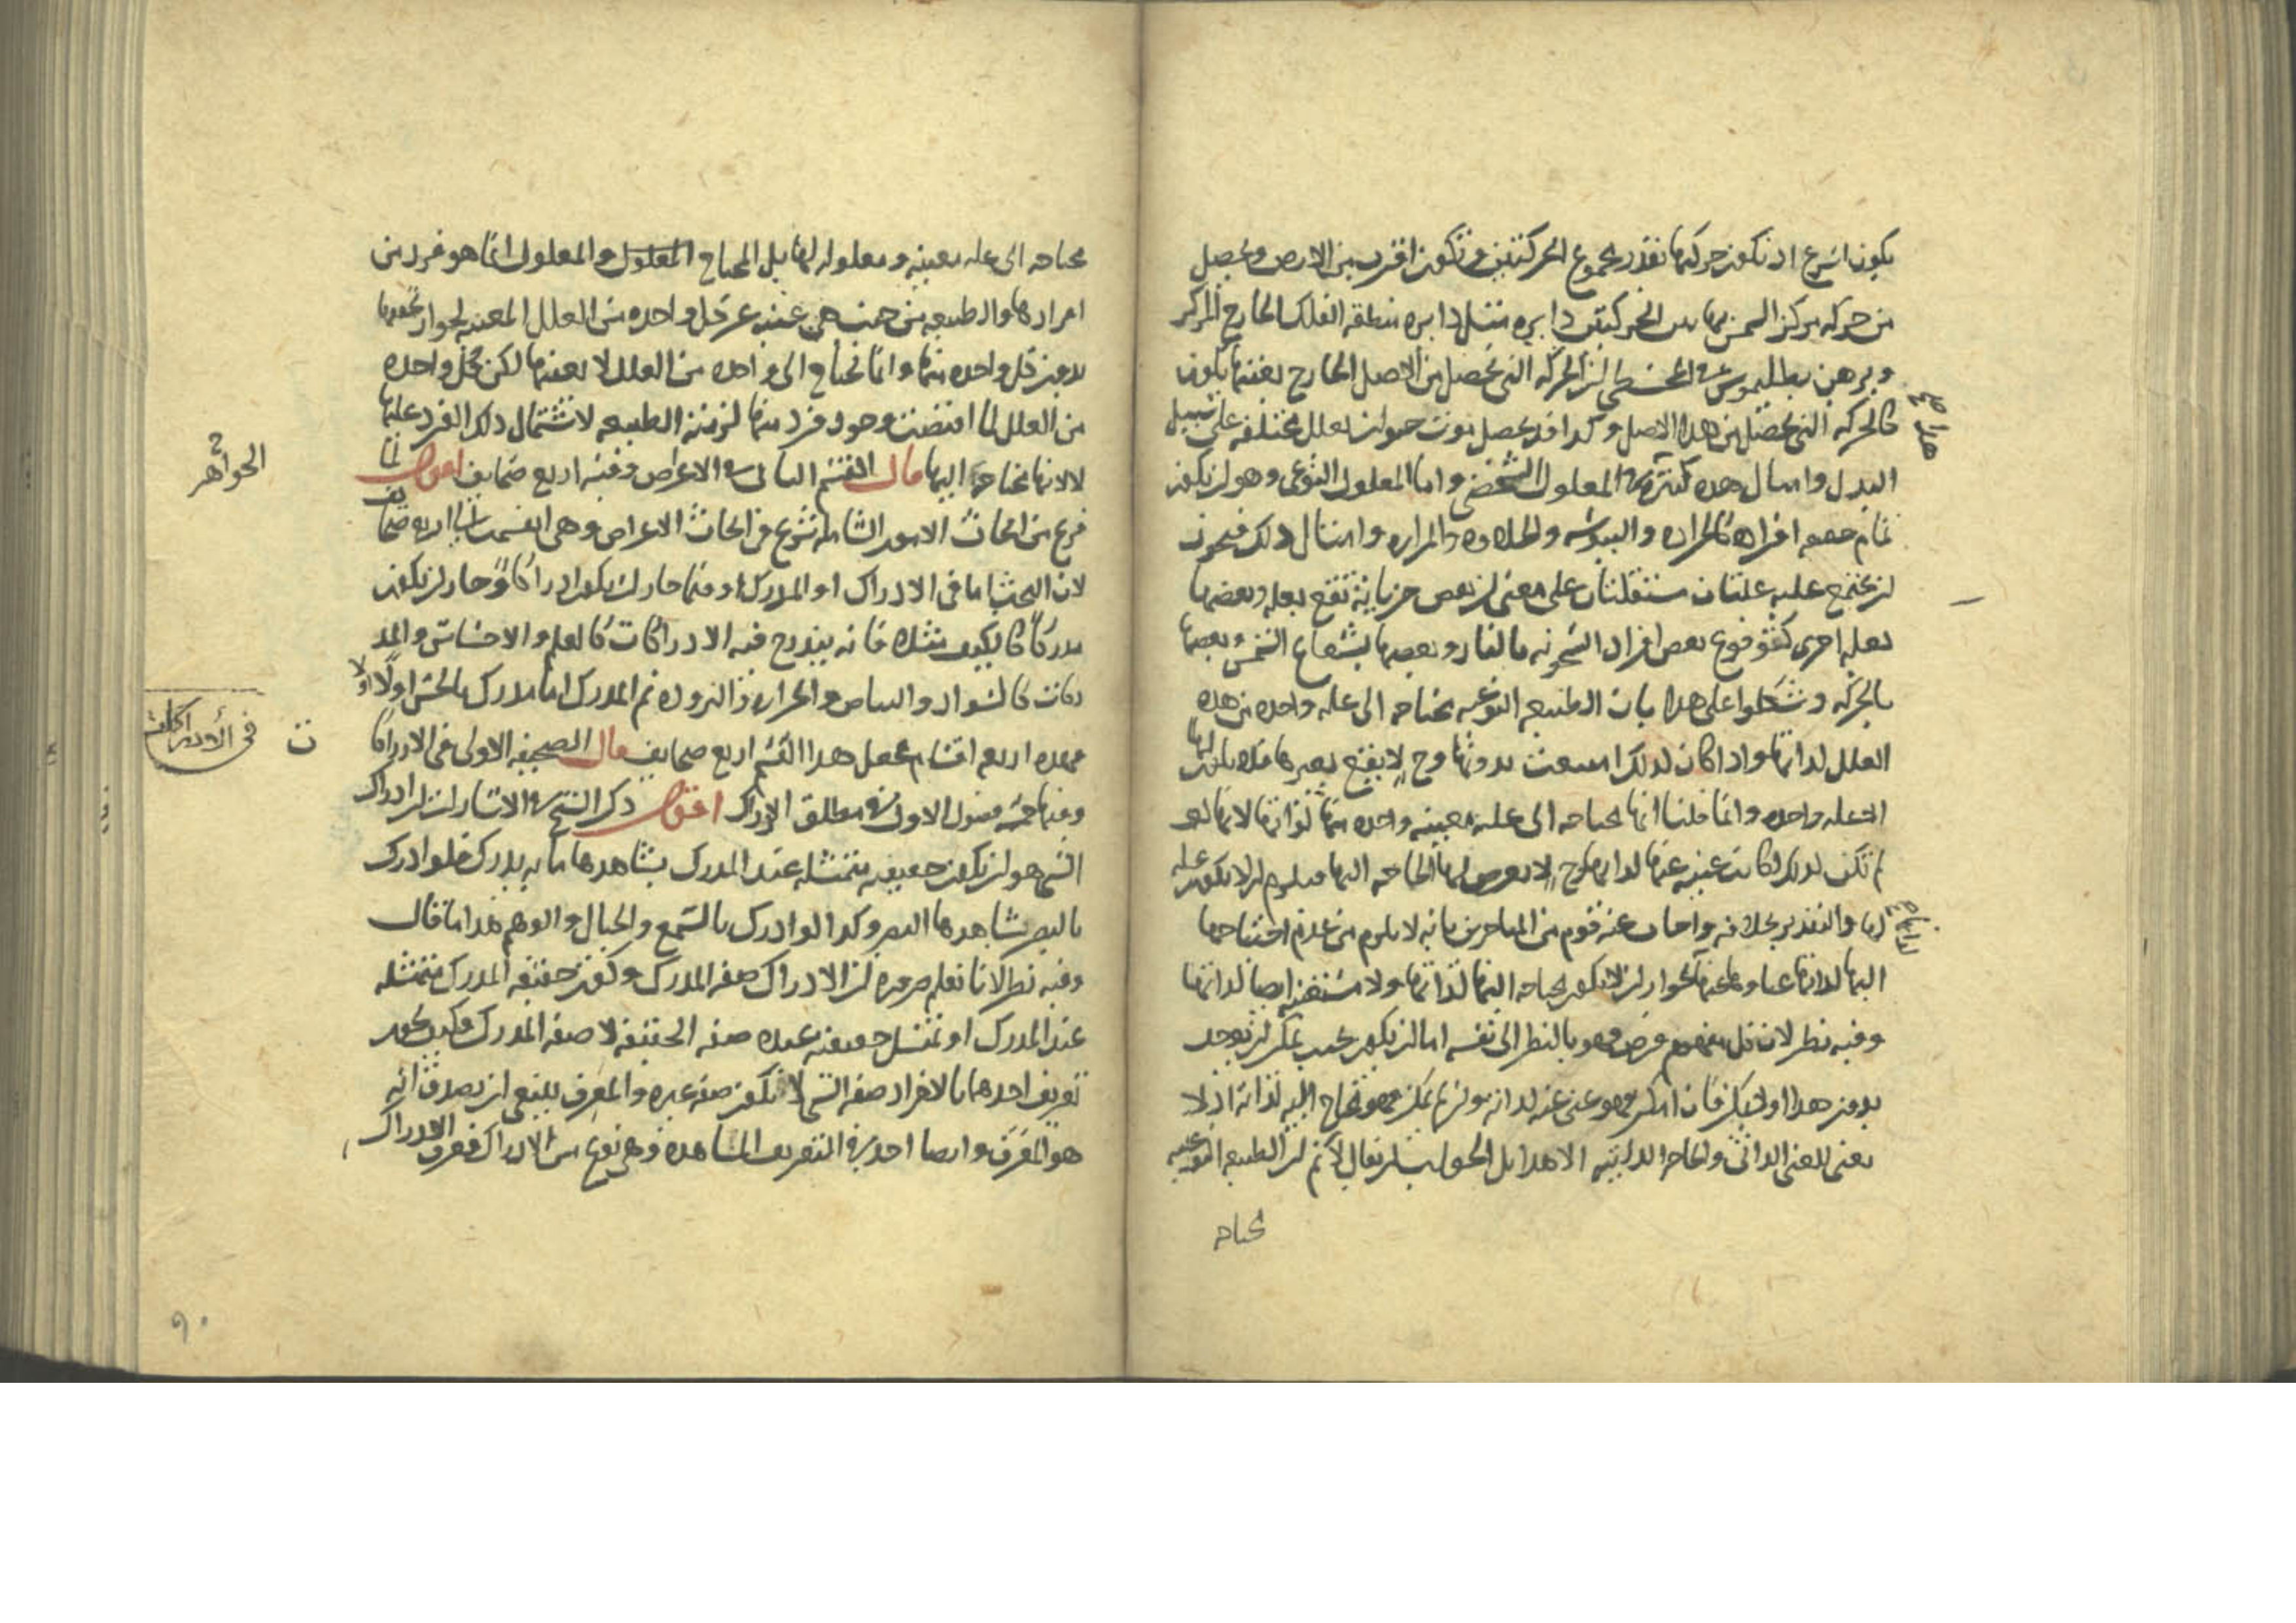 يكون اسرع اذ تكون حركتها بقدر مجموع الحركتين وتكون اقرب من الارض ويحصل
من حركة مركز الشمس بهاتين الحركتين دايره مثل دايره منطقة الفلك الخارج المركز
وبرهن بطليموس في المجسطي ان الحركه التي تحصل من الاصل الخارج بعينها تكون
كالحركه التي تحصل من هذا الاصل وكذا قد يحصل موت حيوان بعلل مختلفه على سبيل
البدل وامثال هذه كثيرة في المعلول الشخصي واما المعلول النوعي وهو ان يكون
تمام حصه افراده كالحراره واليبوسه والحلاوه والمراره وامثال ذلك فيجوز
ان يجتمع عليه علتان مستقلتان على معنى ان بعض جزياته تقع بعله وبعضها
بعله اخرى كوقوع بعض افراد السخونه بالنار وبعضها بشعاع الشمس وبعضها
بالحركه وشككوا على هذا بان الطبيعه النوعيه محتاجه الى علة واحده من هذه
العلل لذاتها واذا كان كذلك امتنعت بدونها وح لا يقع بغيرها فلا يكون لها
الا عله واحده وانما قلنا انها محتاجه الى علة معينه واحده منها لذاتها لانها لو
لم تكن كذلك لكانت غنيه عنها لذاتها وح لا يعرض لها الحاجه اليها فيلزم ان لا يكون علة
لها والتقدير بخلافه واجاب عنه قوم من المتاخرين بانه لا يلزم من عدم احتياجها
اليها لذاتها غناوها عنها لجواز ان لا يكون محتاجه اليها لذاتها ولا مستغن ايضا لذاتها
وفيه نظر لان كل مفهوم فرض فهو بالنظر الى نفسه اما ان يكون بحيث يمكن ان يوجد
بدون هذا او لا يمكن فان امكن فهو غني عنه لذاته وان لم يمكن فهو محتاج اليه لذاته اذ لا
يعنى للغنى الذاتي والحاجه الذاتيه الا هذا بل الجواب ان يقال لا نم ان الطبيعه النوعيه
محتاجه
محتاجه الى عله معينه ومعلوله لها بل المحتاج المعلول والمعلول انما هو فرد من
افرادها والطبيعه من حيث هي غنيه عن كل واحده من العلل المعينه لجواز تحققها
بدون كل واحده منها وانما تحتاج الى واحده من العلل لا بعينها لكن كل واحده
من العلل لما اقتضت وجود فرد منها لزمته الطبيعه لاشتمال ذلك الفرد عليها
لا لانها محتاجه اليها قال القسم الثاني في الاعراض وفيه اربع صحايف اقول لما
فرغ من ابحاث الامور الشامله شرع في ابحاث الاعراض وهي القسم الثاني اربع صحايف
لان البحث اما في الادراك او المدرك او فيما جاز ان يكون ادراكا وجاز ان يكون
مدركا كالكيف مثلا فانه يندرج فيه الادراكات كالعلم والاحساس والمد
ركات كالسواد والبياض والحراره والبروده ثم المدرك اما مدرك بالحس اولا او لا
فهذه اربعه اقسام فجعل هذا القسم اربع صحايف قال الصحيفه الاولى في الادراكا
ت
وفيها خمسه فصول الاول في مطلق الادراك اقول ذكر الشيخ في الاشارات ان ادراك
الشي هو ان يكون حقيقته متمثله عند المدرك يشاهدها ما به يدرك فلو ادرك
بالبصر شاهدها البصر وكذا لو ادرك بالسمع والخيال والوهم هذا ما قال
وفيه نظر لانا نعلم ضرورة ان الادراك صفه المدرك وكون حقيقه المدرك متمثله
عند المدرك او تمثل حقيقته عنده صفه الحقيقه لا صفه المدرك فكيف يجوز
تعريف احدهما بالاخر اذ صفه الشي لا تكون صفه غيره والمعرف ينبغي ان يصدق انه
هو المعرف وايضا اخذ في التعريف المشاهده وهي نوع من الادراك فعرف الادراك
الجواهر
في الأدراكات
٩٠